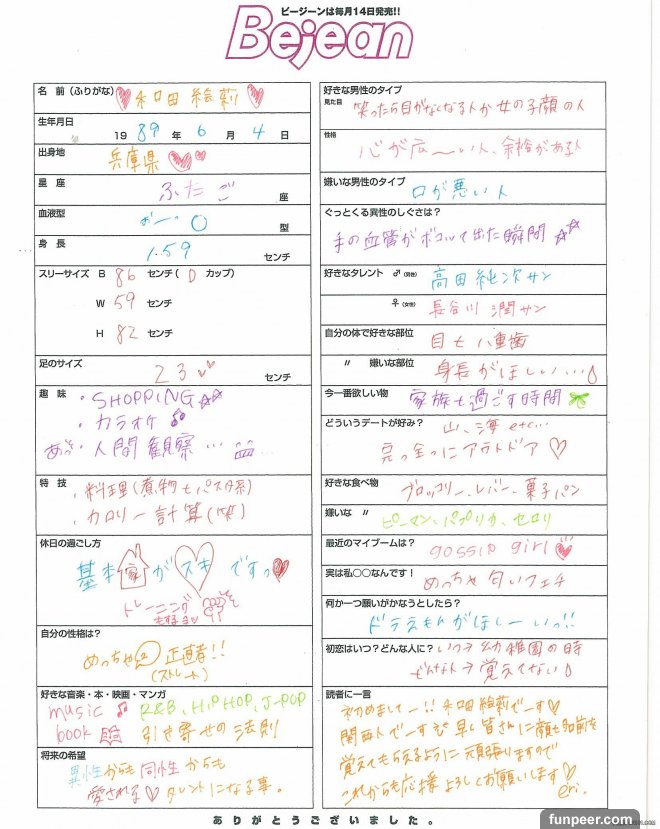 ビージーンは毎月14日発売!!
Bejean
名 前 (ふりがな) 和田 絵莉
生年月日
1989 年 6 月 4 日
出身地 兵庫県
星 座 ふたご 座
血液型 おー O 型
身 長 1.59 センチ
スリーサイズ B 86 センチ( D カップ)
W 59 センチ
H 82 センチ
足のサイズ 23 センチ
趣 味 ・SHOPPING
・カラオケ
あと・人間観察…
特 技 ・料理(煮物もパスタ系)
・カロリー計算(笑)
休日の過ごし方
基本家がスキですっ
トレーニング
もするョ
自分の性格は?
めっちゃ2正直者!!
(ストレート)
好きな音楽・本・映画・マンガ
music R&B、HIPHOP、J-POP
book 引き寄せの法則
将来の希望
異性からも同性からも
愛されるタレントになる事。
好きな男性のタイプ
見た目 笑ったら目がなくなる人か女の子顔の人
性格 心が広〜い人、余裕がある人
嫌いな男性のタイプ
口が悪い人
ぐっとくる異性のしぐさは?
手の血管がボコッて出た瞬間
好きなタレント ♂(男性) 高田純次サン
♀(女性) 長谷川 潤サン
自分の体で好きな部位 目も八重歯
〃 嫌いな部位 身長がほしい…
今一番欲しい物 家族と過ごす時間
どういうデートが好み? 山、海 etc…
完っ全っにアウトドア
好きな食べ物 ブロッコリー、レバー、菓子パン
嫌いな 〃 ピーマン、パプリカ、セロリ
最近のマイブームは? gossip girl
実は私○○なんです!
めっちゃ匂いフェチ
何か一つ願いがかなうとしたら?
ドラえもんがほしーいっ!!
初恋はいつ?どんな人に? いつ→幼稚園の時
どんな人→覚えてない
読者に一言
初めましてー!!和田絵莉でーす
関西人でーす 早く皆さんに顔も名前を
覚えてもらえるように頑張りますので
これからも応援よろしくお願いします
eri.
ありがとうございました。
funpeer.com